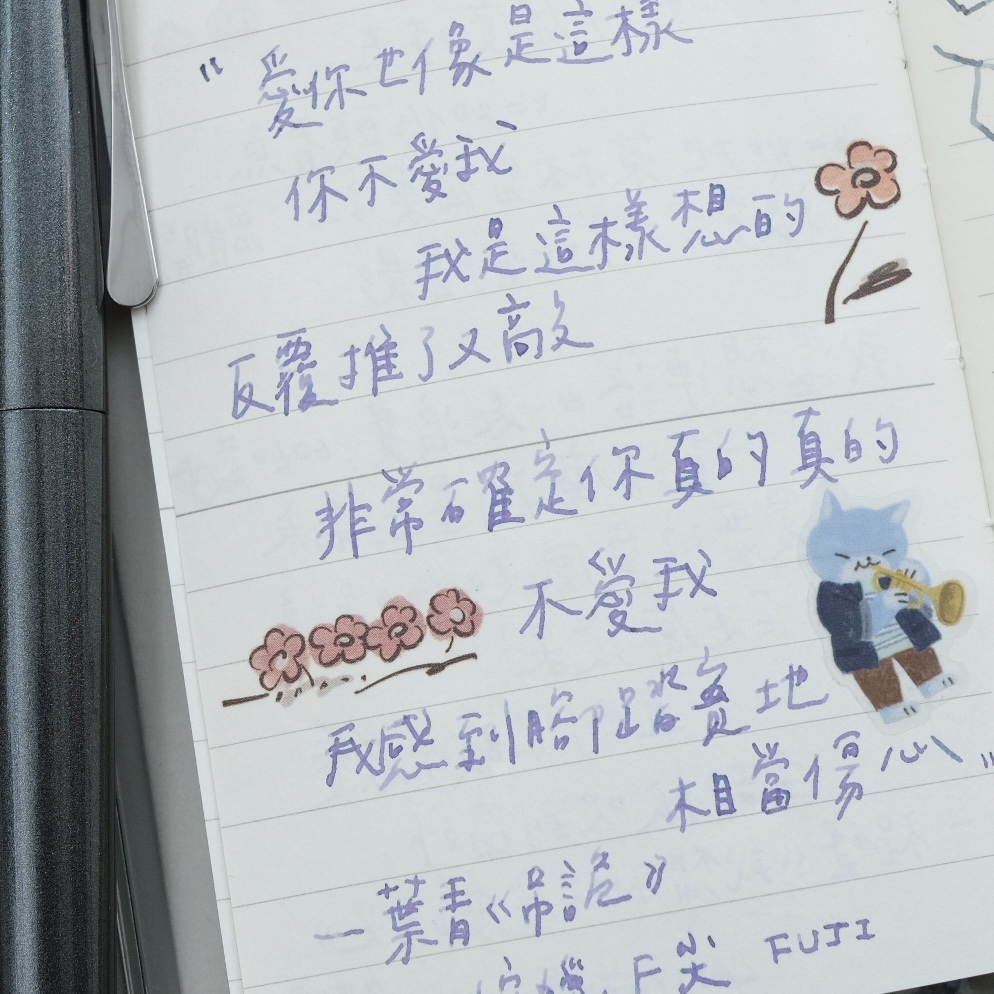 "愛你也像是這樣
你不愛我
我是這樣想的
反覆推了又敲
非常確定你真的真的
不愛我
我感到腳踏實地
相當傷心"
—葉青《弔詭》
F尖 FUJI